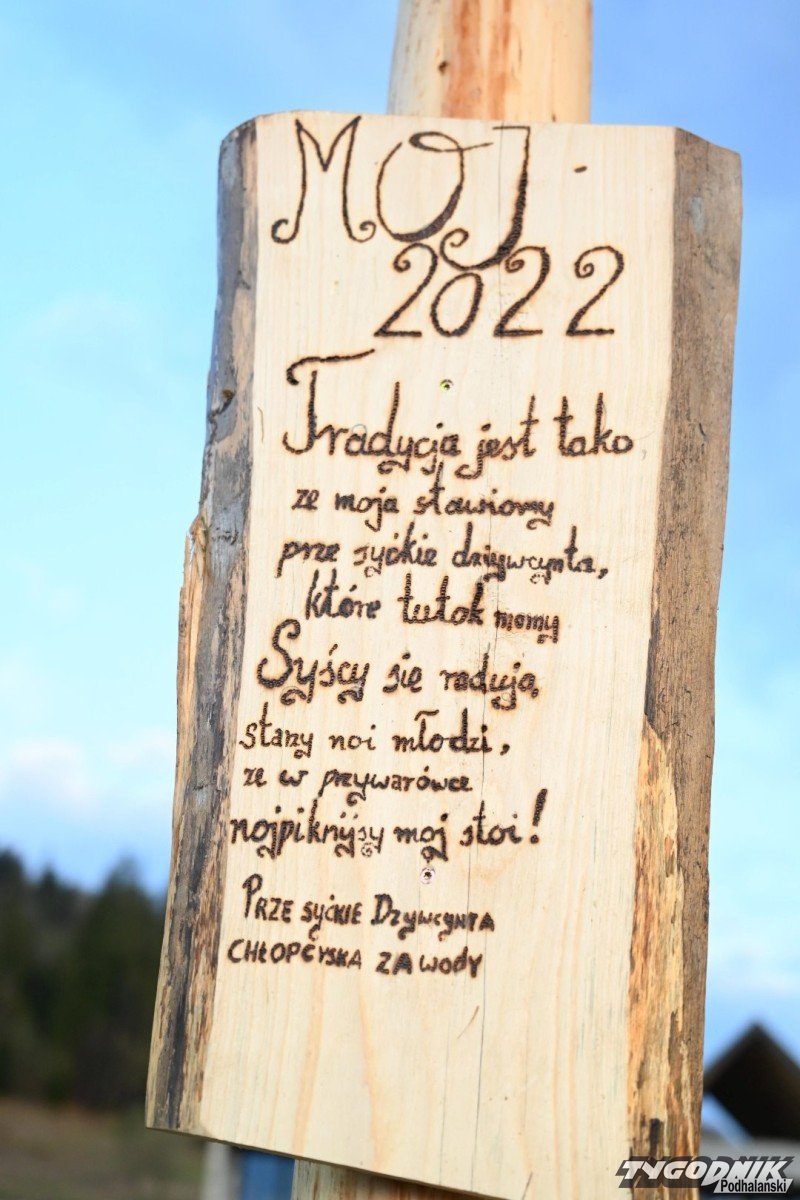 MOJ
2022
Tradycja jest tako
ze moja stawiomy
prze syćkie dziywcynta,
które tutok momy
Syścy się radują,
starzy noi młodzi,
ze w przywarówce
nojpiknijsy moj stoi!
PRZE SYĆKIE DZYWCYNTA
CHŁOPCYSKA ZA WODY
TYGODNIK
Podhalański